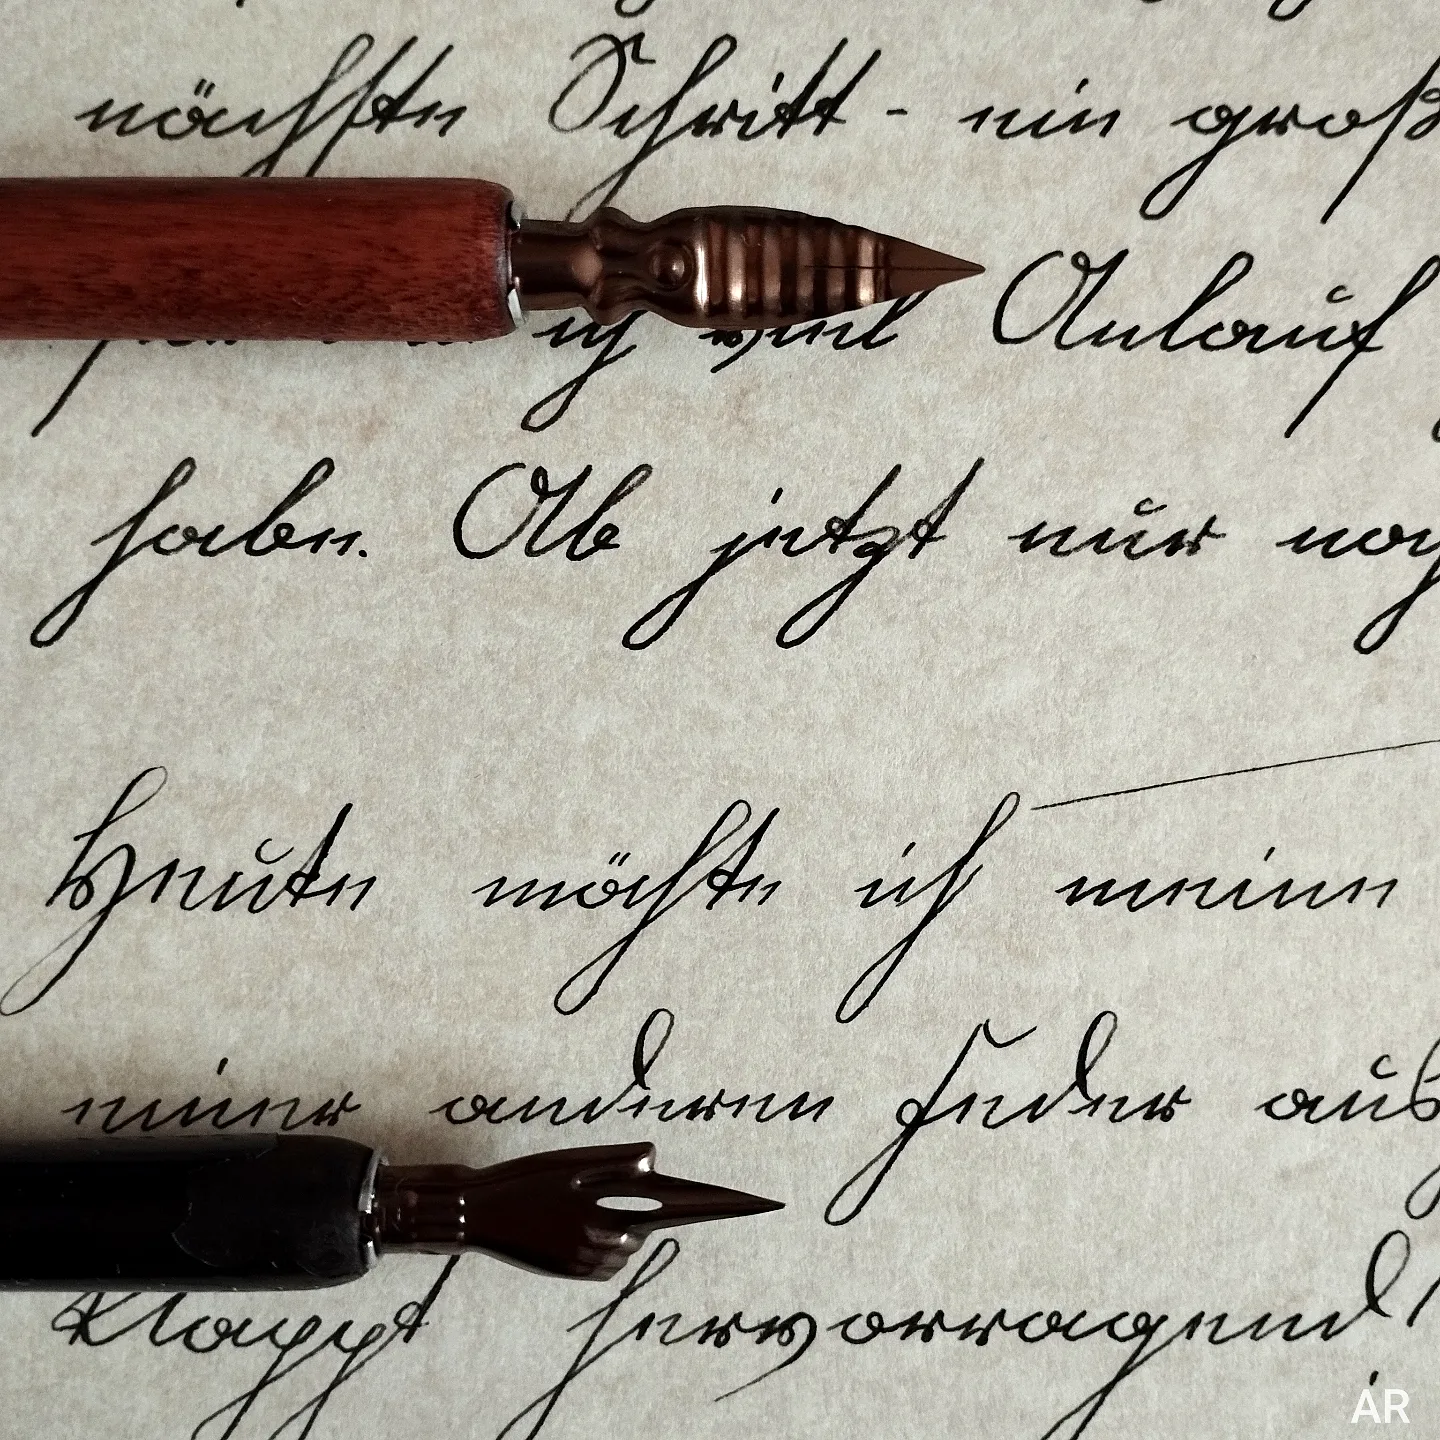 nächste Schritt - ein groß
ich viel Anlauf
habe. Ob jetzt nur noch
Heute möchte ich meine
meiner anderen Feder aus
Klappt hervorragend!
AR